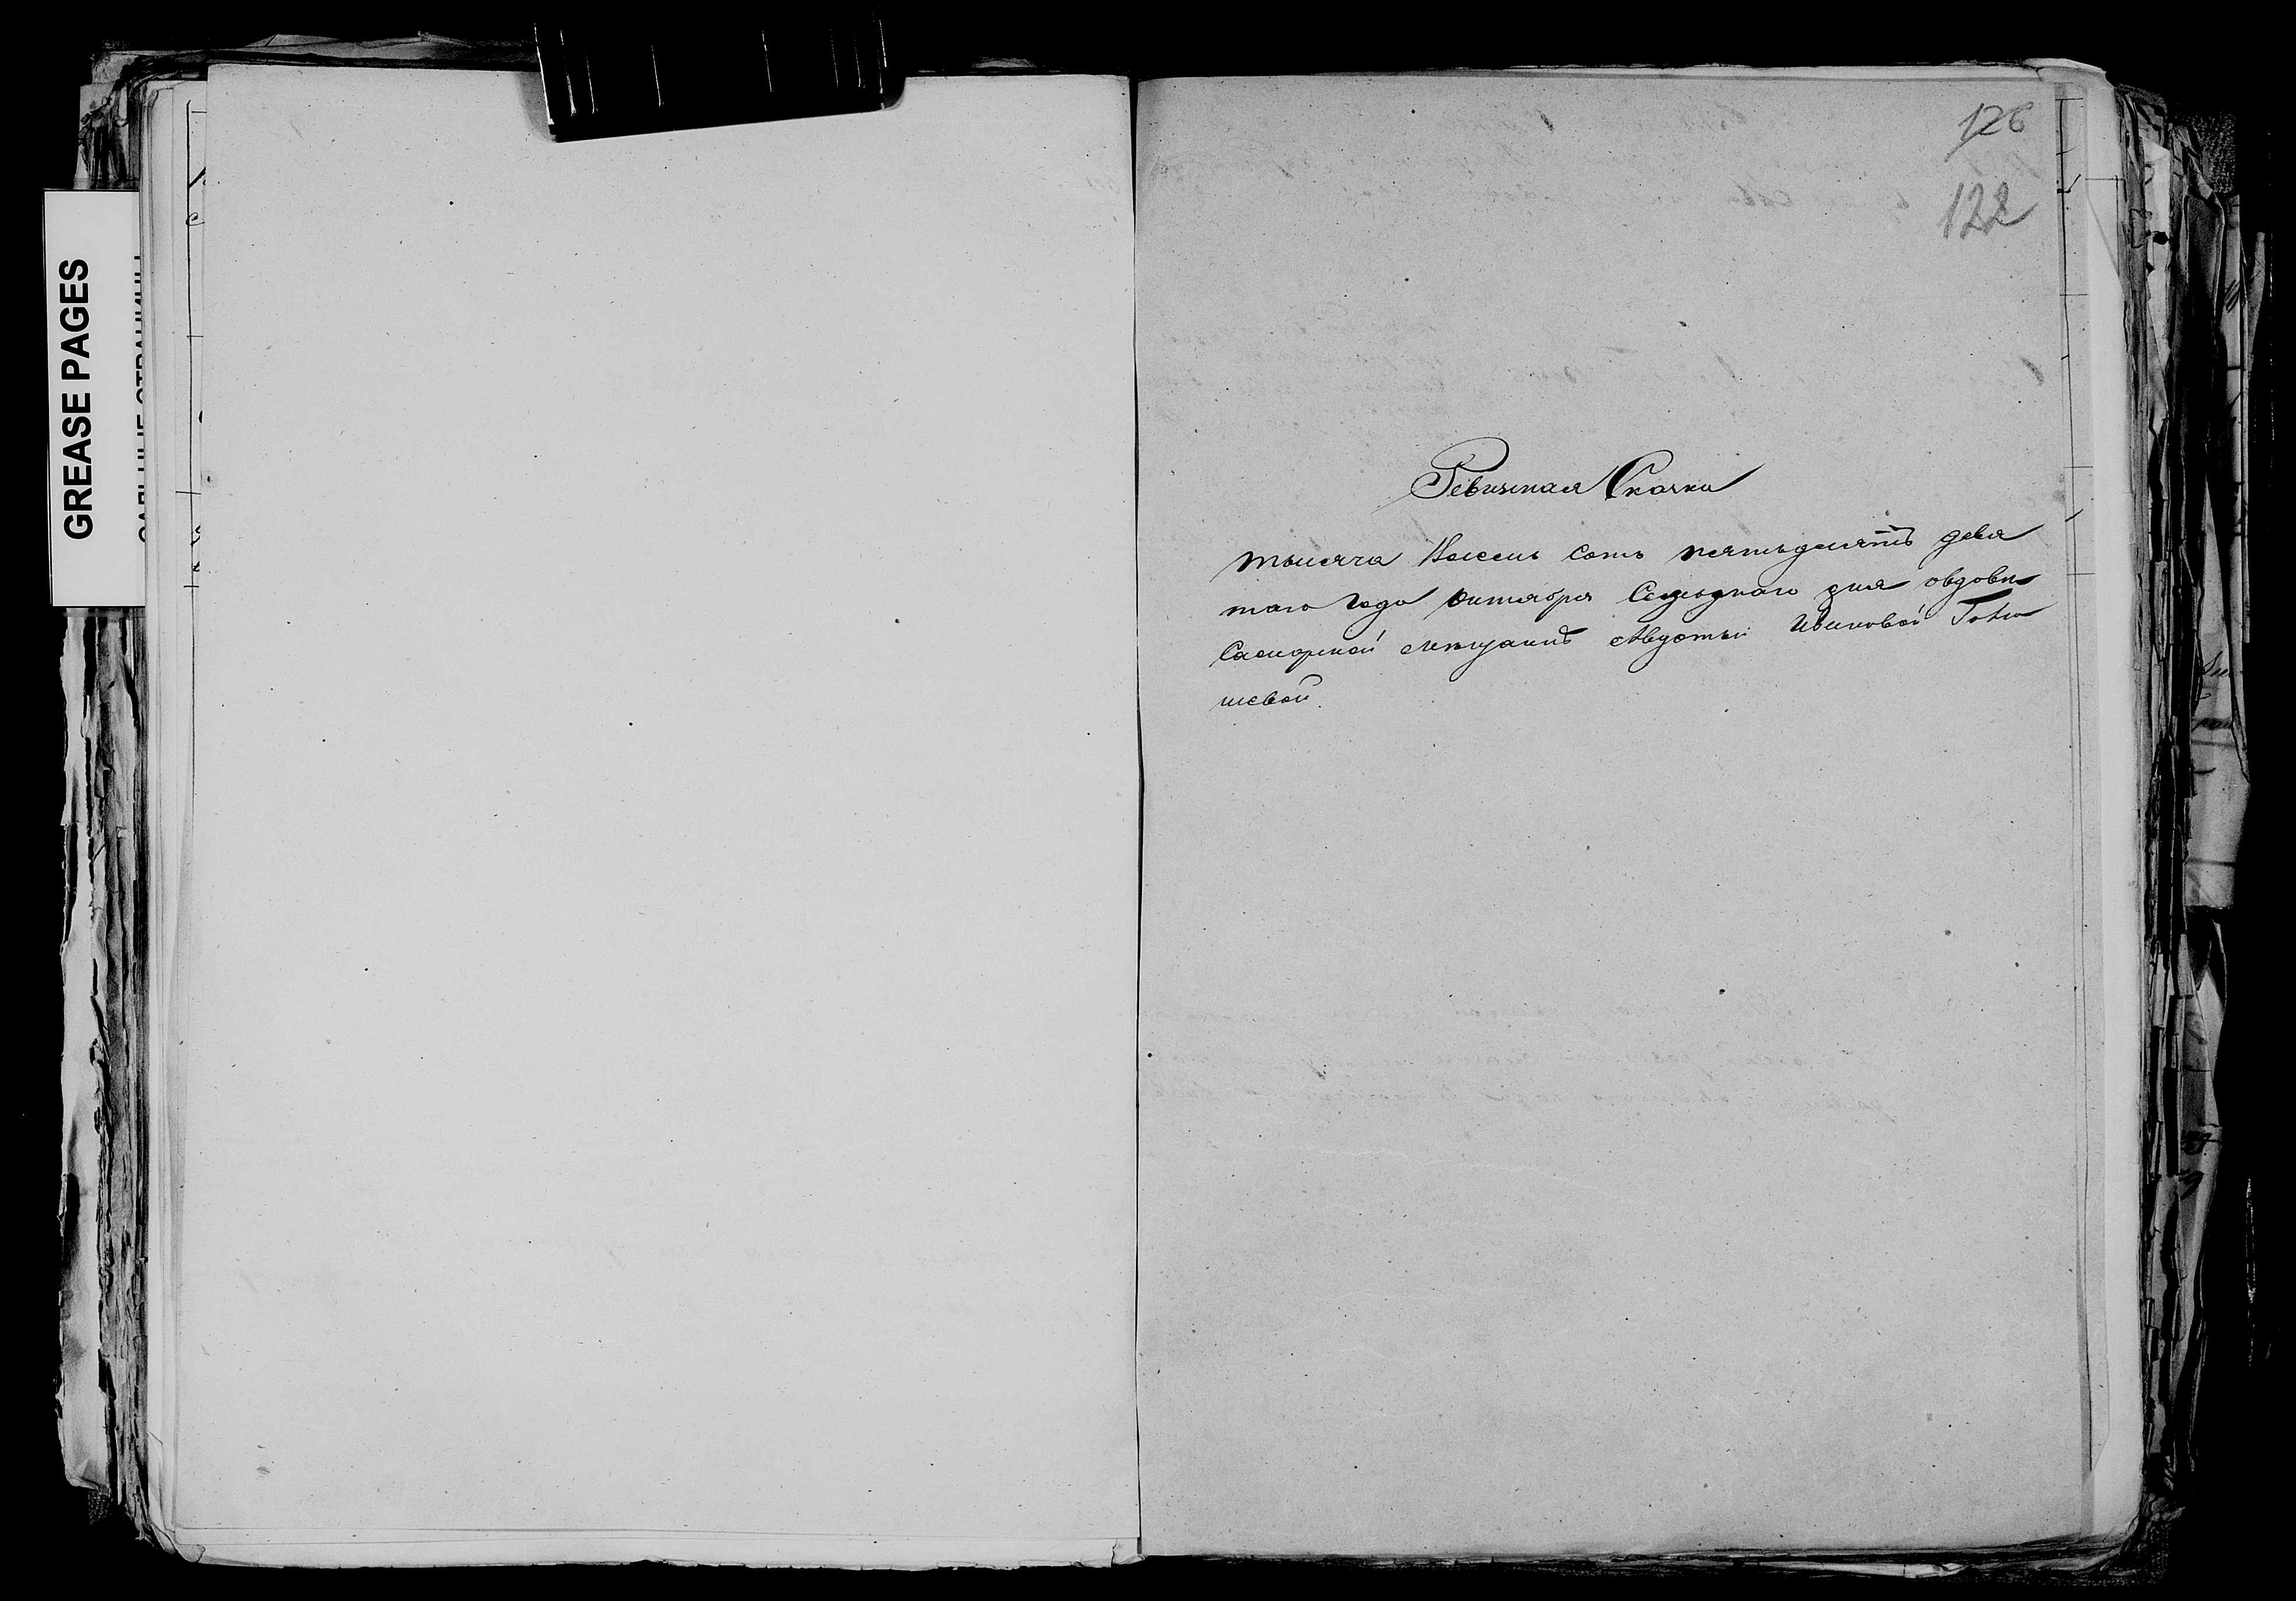 GREASE PAGES
126
122
Ревизская Сказка
тысяча Восемь сотъ пятьдесятъ девя
таго года октября Седьмаго дня вдовы
Самарской мещанки Авдотьи Ивановой Готю
шевой.